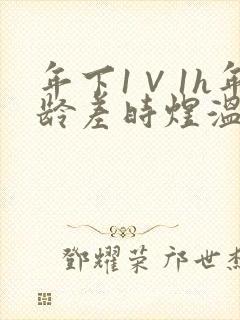 年下1V1h年
龄差时煜温
鄧耀荣 邝世杰